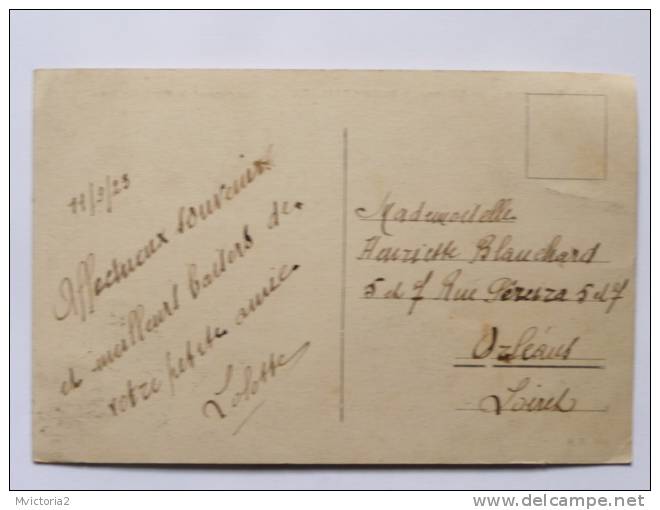 11/9/23
Affectueux souvenirs
et meilleurs baisers de
votre petite amie
Lolotte
Mademoiselle
Henriette Blanchard
5 et 7 Rue 5 et 7
Orléans
Loiret
Mvictoria2
delcampe.net